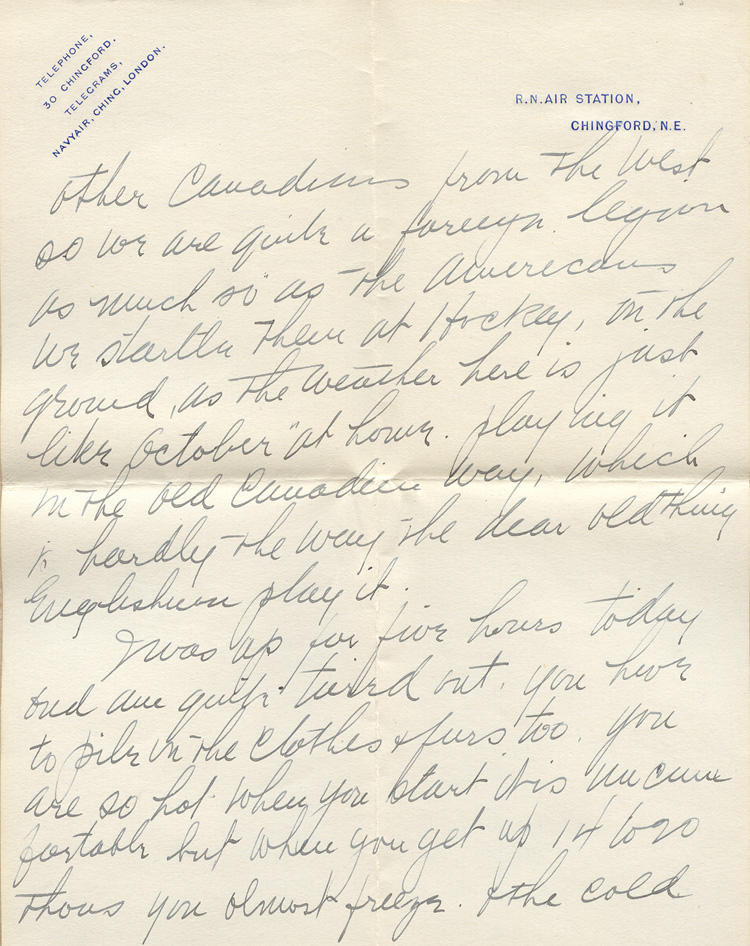 TELEPHONE,
30 CHINGFORD.
TELEGRAMS,
NAVYAIR, CHING, LONDON.
R.N. AIR STATION,
CHINGFORD, N.E.
other Canadians from the West
so we are quite a foreign legion
as much so as the Americans
We startle them at Hockey, on the
ground, as the weather here is just
like October "at home. playing it
in the old Canadian way, which
is hardly the way the dear old thing
Englishmen play it.
I was up for five hours today
and am quite tired out. you have
to pile on the clothes & furs too. you
are so hot when you start it is uncom
fortable but when you get up 14 to 20
thous you almost freeze. & the cold